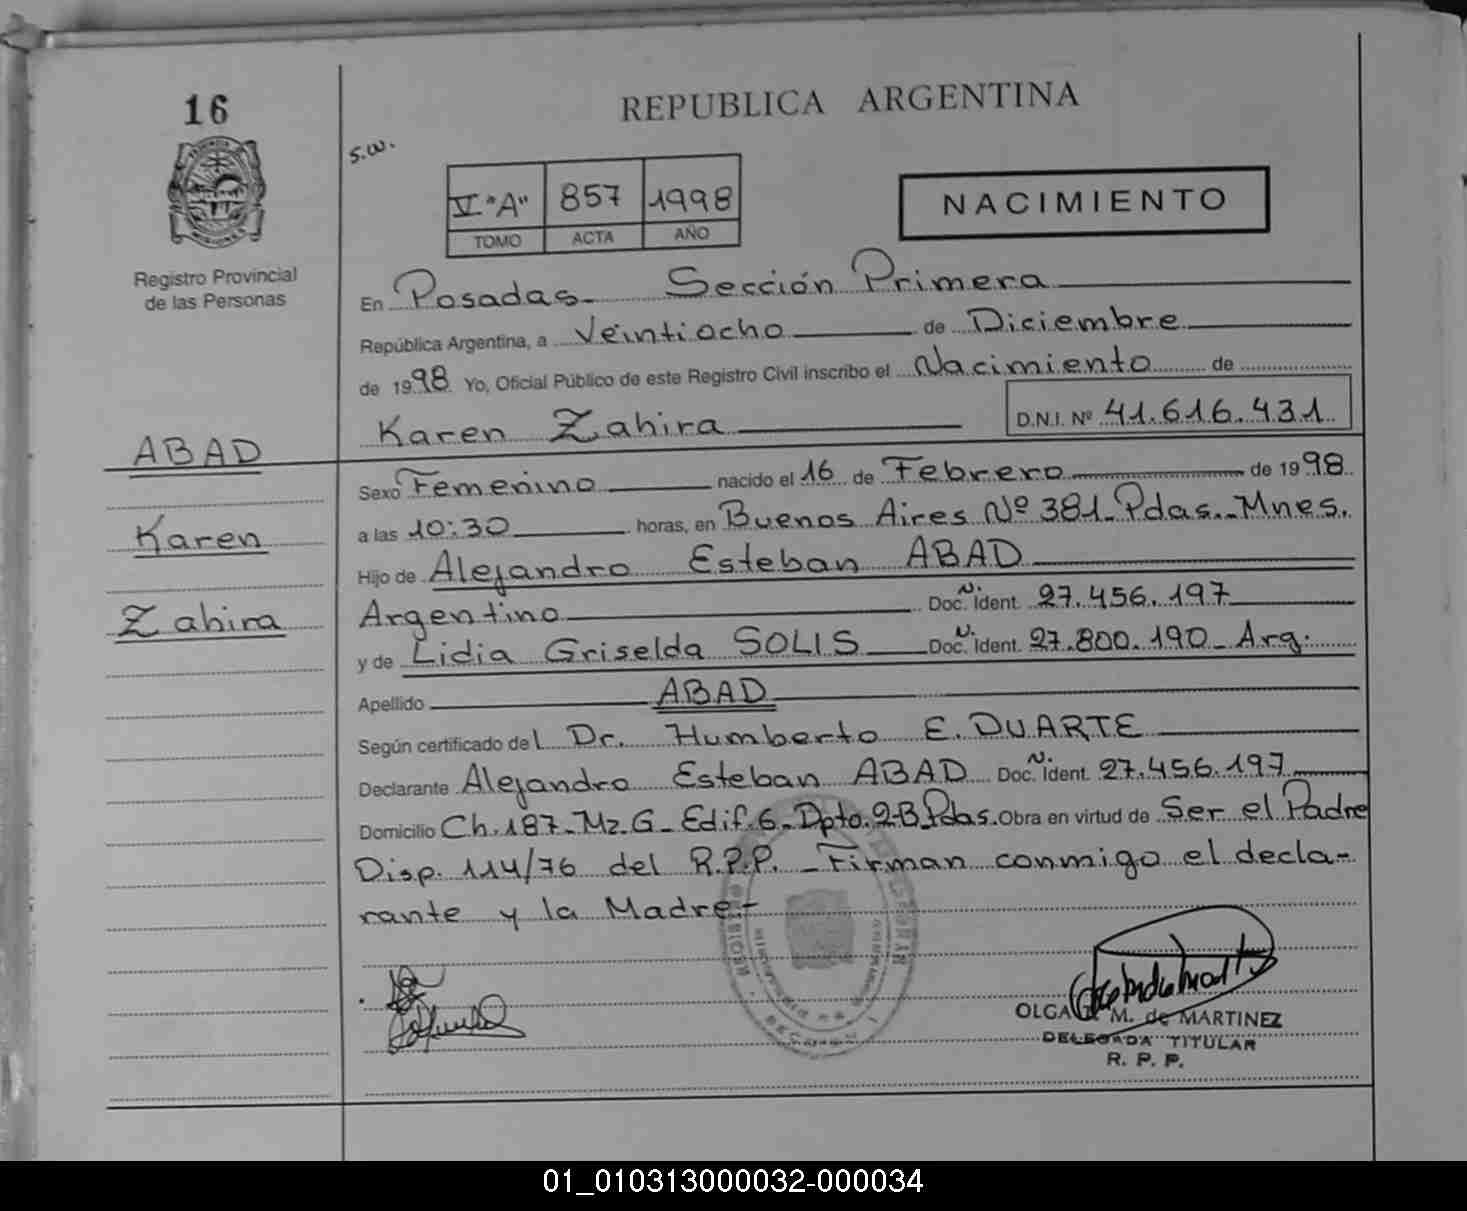 16
REPUBLICA ARGENTINA
s.w.
V "A" 857 1998
TOMO ACTA AÑO
NACIMIENTO
Registro Provincial
de las Personas
En Posadas - Sección Primera
República Argentina, a Veintiocho de Diciembre
de 1998 Yo, Oficial Público de este Registro Civil inscribo el Nacimiento de
Karen Zahira D.N.I. Nº 41.616.431
ABAD
Karen
Zahira
Sexo Femenino nacido el 16 de Febrero de 1998
a las 10:30 horas, en Buenos Aires Nº 381 - Pdas. - Mnes.
Hijo de Alejandro Esteban ABAD
Argentino Doc. N. Ident. 27.456.197
y de Lidia Griselda SOLIS Doc. N. Ident. 27.800.190 - Arg.
Apellido ABAD
Según certificado del Dr. Humberto E. DUARTE
Declarante Alejandro Esteban ABAD Doc. N. Ident. 27.456.197
Domicilio Ch. 187 - Mz. G - Edif. 6 - Dpto. 2-B Pdas. Obra en virtud de Ser el Padre
Disp. 114/76 del R.P.P. - Firman conmigo el decla-
rante y la Madre -
OLGA M. de MARTINEZ
DELEGADA TITULAR
R. P. P.
01_010313000032-000034